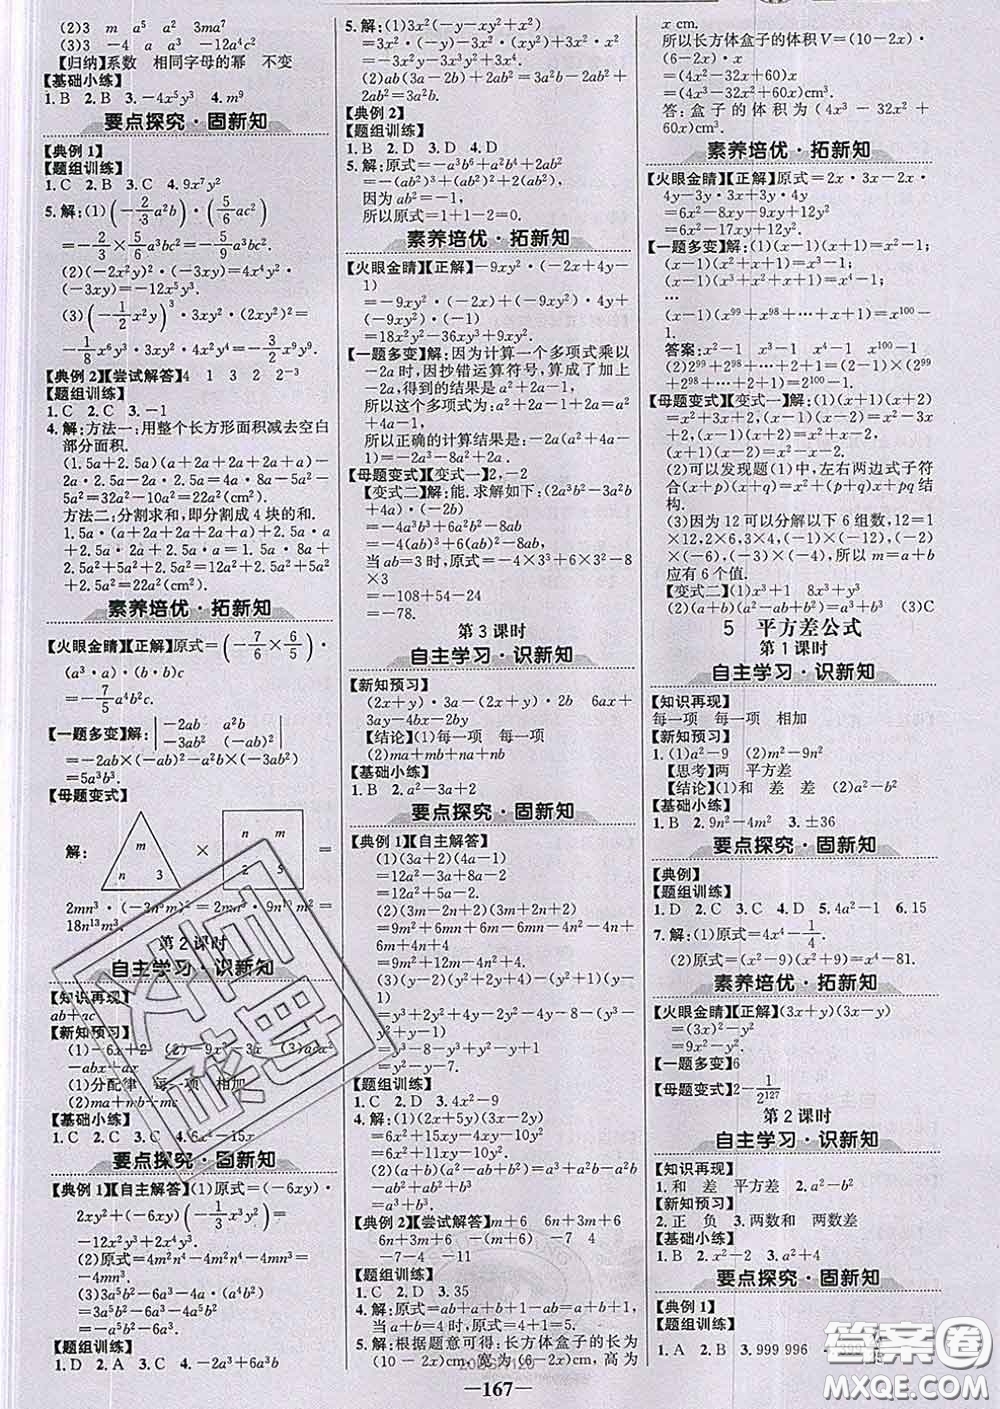 (2)3 m a⁵ a² 3ma⁷
(3)3 -4 a a³ -12a⁴c²
【归纳】系数 相同字母的幂 不变
【基础小练】
1.B 2.B 3.-4x⁵y³ 4.m⁹
要点探究·固新知
【典例1】
【题组训练】
1.C 2.B 3.C 4.9x⁷y²
5.解:(1)(-2/3a²b)·(5/6ac²)
=-2/3×5/6a³bc²=-5/9a³bc².
(2)(-2x²y)²·(-3xy)=4x⁴y²·
(-3xy)=-12x⁵y³.
(3)(-1/2x²y)³·3xy²·(2xy²)²=
-1/8x⁶y³·3xy²·4x²y⁴=-3/2x⁹y⁹.
【典例2】【尝试解答】4 1 3 2 2⁻³
【题组训练】
1.C 2.C 3.-1
4.解:方法一:用整个长方形面积减去空白
部分面积.
(1.5a+2.5a)(a+2a+2a+2a+a)-
2a·2.5a-2a·2.5a=4a·8a-5a²-
5a²=32a²-10a²=22a²(cm²).
方法二:分割求和,即分割成4块的和.
1.5a·(a+2a+2a+2a+a)+2.5a·
a+2.5a·2a+2.5a·a=1.5a·8a+
2.5a²+5a²+2.5a²=12a²+2.5a²+5a²+
2.5a²=22a²(cm²).
素养培优·拓新知
【火眼金睛】【正解】原式=(-7/6×6/5)·
(a³·a)·(b·b)c
=-7/5a⁴b²c.
【一题多变】解:|-2ab a²b -3ab² (-ab)²|=
-2ab×(-ab)²-a²b×(-3ab²)=
5a³b³.
【母题变式】
解: m n 3 × n m 2 5 =
18n¹³m³.
第2课时
自主学习·识新知
【知识再现】
ab+ac
【新知预习】
-abx-ax
(1)分配律 每一项 相加
(2)ma+mb+mc
【基础小练】
1.C 2.C 3.C 4.6x³-15x
要点探究·固新知
【典例1】【自主解答】(1)原式=(-6xy)·
2xy²+(-6xy)(-1/3x³y²)=
-12x²y³+2x⁴y³.
(2)原式=4m²n⁴-4m²n⁴-4mn³=
-4mn³.
(3)3a⁵b³-2a²b·(-a³b²)·(-4a)
=3a⁵b³-6a⁵b³+2a⁵b³
=-a⁵b³.
【题组训练】
1.D 2.A 3.C 4.-2a³+6a³b
5.解:(1)3x²(-y-xy²+x²)
=-3x²y-3x³y²+3x⁴.
(2)ab(3a-2b)+2ab²=3a²b-2ab²+
2ab²=3a²b.
【典例2】
【题组训练】
1.B 2.D 3.D 4.D
5.解:原式=-a³b⁶+a²b⁴+2ab²
=-(ab²)³+(ab²)²+2ab².
因为ab²=-1,
所以原式=1+1-2=0.
素养培优·拓新知
【火眼金睛】【正解】-9xy²·(-2x+4y-
1)
=-9xy²·(-2x)+(-9xy²)·4y-
(-9xy²)·1
=18x²y²-36xy³+9xy².
【一题多变】解:因为计算一个多项式乘以
-2a时,因抄错运算符号,算成了加上
-2a,得到的结果是a²+2a-1,
所以这个多项式为:a²+2a-1+2a=a²+
4a-1,
所以正确的计算结果是:-2a(a²+4a-
1)=-2a³-8a²+2a.
【母题变式】【变式一】2,-2
【变式二】解:能.求解如下:(2a³b²-3a²b
+4a)·(-2b)
=-4a³b³+6a²b²-8ab
=-4(ab)³+6(ab)²-8ab
当ab=3时,原式=-4×3³+6×3²-8
×3
=-108+54-24
=-78.
第3课时
自主学习·识新知
【新知预习】
(2x+y)·3a-(2x+y)·2b 6ax+
3ay-4bx-2by
【结论】(1)每一项 每一项
(2)ma+mb+na+nb
【基础小练】
1.B 2.a²-3a+2
要点探究·固新知
【典例1】【自主解答】
(1)(3a+2)(4a-1)
=12a²-3a+8a-2
=12a²+5a-2.
(2)(3m-2n)(3m+2n+2)
=9m²+6mn+6m-6mn-4n²-4n
=9m²+6m-4n²-4n
=9m²-4n²+12mn.
(3)(y-2)(y²+2y+4)-(y-1)(y²
-1)
=y³+2y²+4y-2y²-4y-8-(y³-y
=y³-8-y³+y+y²-1
=y²+y-7.
【题组训练】
1.C 2.D 3.4x²-9
4.解:(1)(2x+5y)(3x-2y)
=6x²+15xy-4xy-10y²
=6x²+11xy-10y².
(2)(a+b)(a²-ab+b²)
=a³-a²b+ab²+a²b-ab²+b³
=a³+b³.
【典例2】【尝试解答】m+6 6n+3m+6
6n+3m+6 -(m+6) -7 4
-7-4 -11
【题组训练】
1.C 2.D 3.35
4.解:原式=ab+a+b+1=ab+(a+b)+1,
当a+b=4,ab=1时,
原式=1+4+1=6.
5.解:根据题意可得:长方体盒子的长为
(10-2x)cm,宽为(6-2x)cm,高为
x cm.
所以长方体盒子的体积V=(10-2x)·
(6-2x)·x
=(4x²-32x+60)x
=(4x³-32x²+60x)cm³.
答:盒子的体积为(4x³-32x²+
60x)cm³.
素养培优·拓新知
【火眼金睛】【正解】原式=2x·3x-2x·
4y-3y·3x+3y·4y
=6x²-8xy-9xy+12y²
=6x²-17xy+12y².
【一题多变】解:(1)(x-1)(x+1)=x²-1;
(x-1)(x²+x+1)=x³-1;
(x-1)(x³+x²+x+1)=x⁴-1;
…
(x-1)(x⁹⁹+x⁹⁸+…+x+1)=x¹⁰⁰-1;
答案:x²-1 x³-1 x⁴-1 x¹⁰⁰-1
(2)2⁹⁹+2⁹⁸+…+2+1=(2-1)×(2⁹⁹
+2⁹⁸+…+2+1)=2¹⁰⁰-1.
【母题变式】【变式一】解:(1)(x+1)(x+2)
=x²+3x+2,(x-1)(x-2)=x²-3x+
2,(x-1)(x+2)=x²+x-2,(x+1)(x
-2)=x²-x-2.
(2)可以发现题(1)中,左右两边式子符合
(x+p)(x+q)=x²+(p+q)x+pq结
构.
(3)因为12可以分解以下6组数,12=1
×12,2×6,3×4,(-1)×(-12),(-2)×
(-6),(-3)×(-4),所以m=a+b
应有6个值.
【变式二】(1)x³+1 x³+8
(2)(a+b)(a²-ab+b²)=a³+b³ (3)C
5 平方差公式
第1课时
自主学习·识新知
【知识再现】
每一项 每一项 相加
【新知预习】
1.(1)a²-9 (2)m²-9n²
【思考】两 平方差
【结论】(1)和 差 差 (2)a²-b²
【基础小练】
1.B 2.9n²-4m² 3.±36
要点探究·固新知
【典例】
【题组训练】
1.D 2.C 3.C 4.D 5.4a²-1 6.15
7.解:(1)原式=4x⁴-1/4.
(2)原式=(x²-9)(x²+9)=x⁴-81.
素养培优·拓新知
【火眼金睛】【正解】(3x+y)(3x-y)
=(3x)²-y²
=9x²-y².
【一题多变】6
【母题变式】2-1/2¹²⁷
第2课时
自主学习·识新知
【知识再现】
1.和 差 平方差 (a+b)(a-b)=a²-b²
【新知预习】
2.正 负 3.两数和 两数差
【基础小练】
1.B 2.x²-2 3.a²+4
要点探究·固新知
【典例1】
【题组训练】
1.A 2.B 3.999 996
—167—
答案圈
MXQE.COM